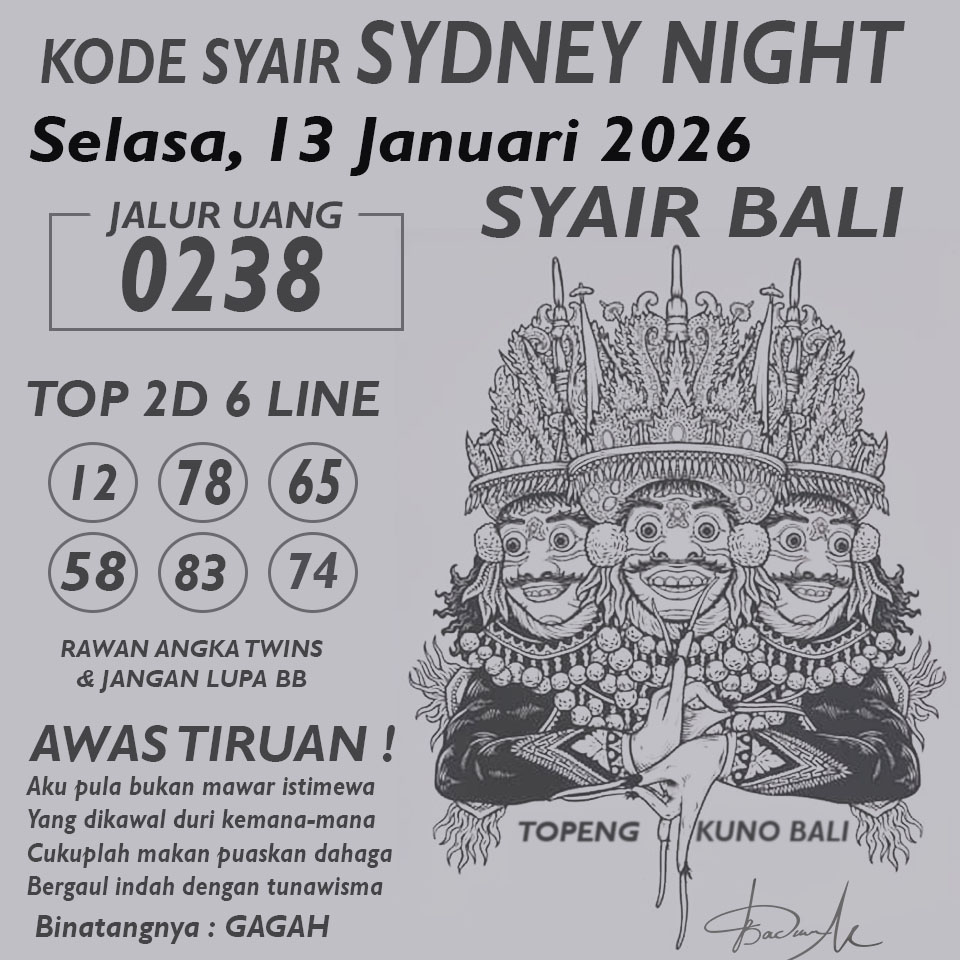 KODE SYAIR SYDNEY NIGHT
Selasa, 13 Januari 2026
SYAIR BALI
JALUR UANG
0238
TOP 2D 6 LINE
12 78 65
58 83 74
RAWAN ANGKA TWINS
& JANGAN LUPA BB
AWAS TIRUAN !
Aku pula bukan mawar istimewa
Yang dikawal duri kemana-mana
Cukuplah makan puaskan dahaga
Bergaul indah dengan tunawisma
Binatangnya : GAGAH
TOPENG KUNO BALI